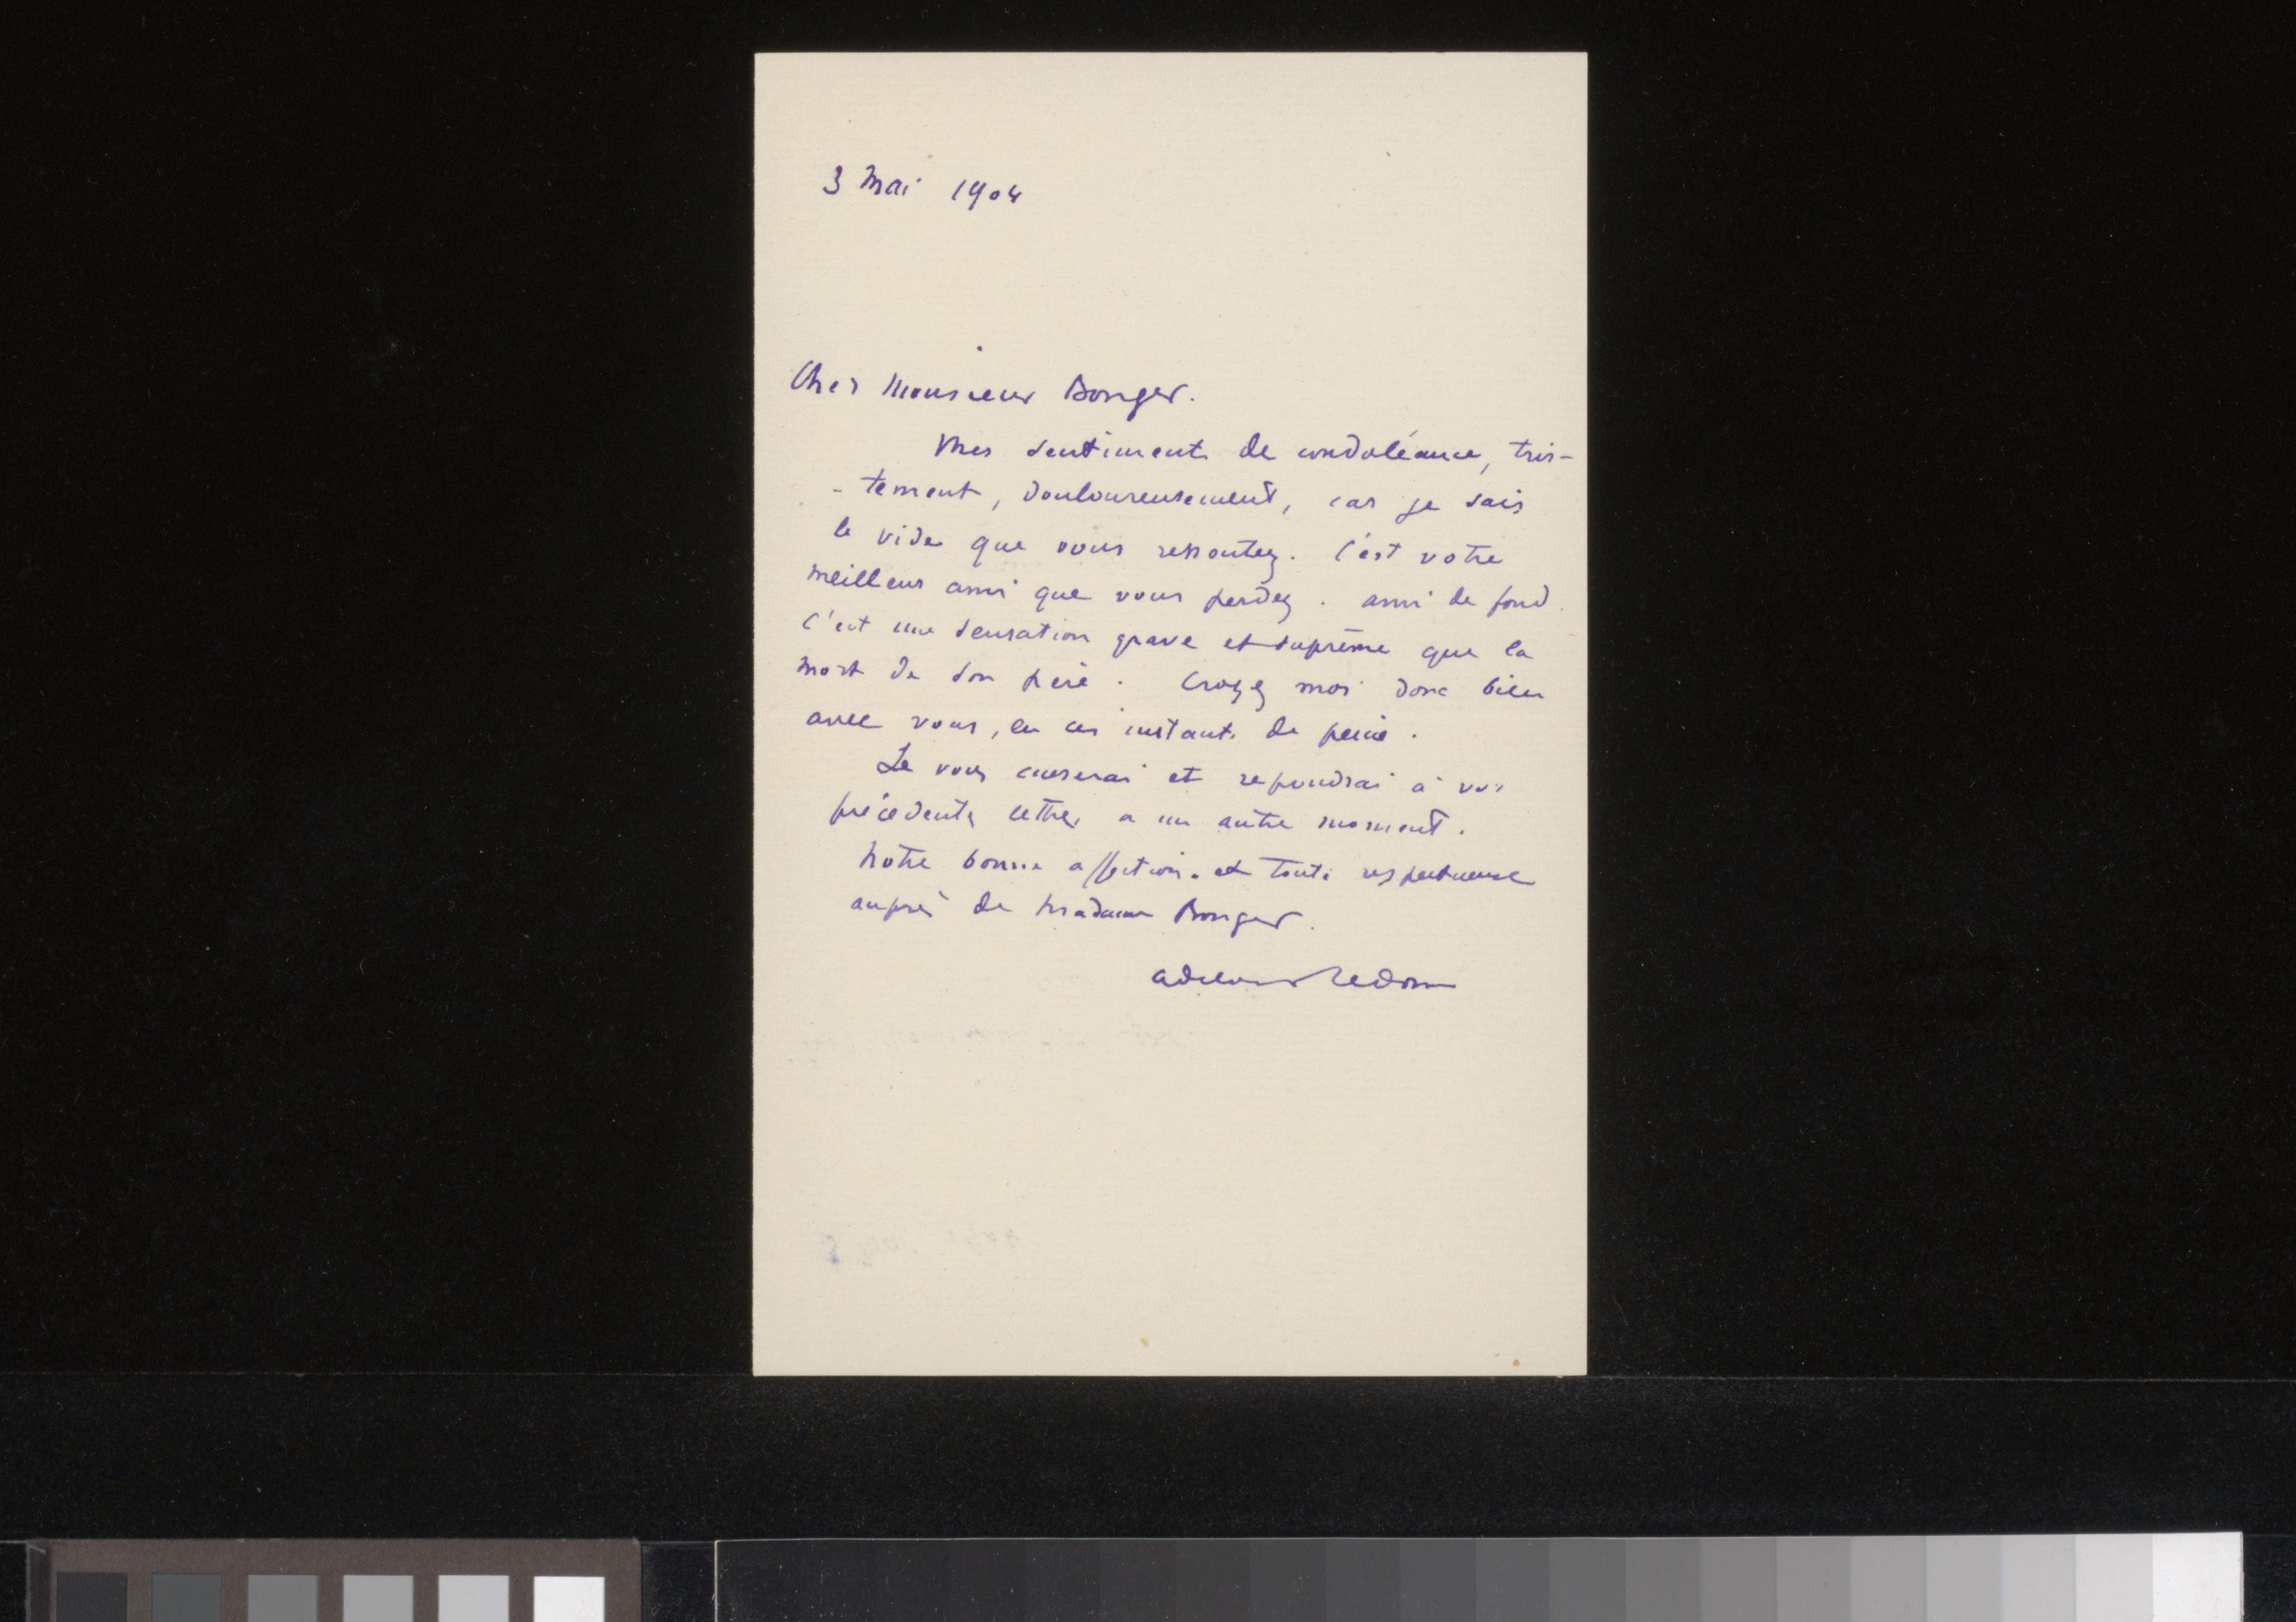 3 Mai 1904
Cher Monsieur Bonger.
Mes sentiments de condoléance, tris-
- tement, douloureusement, car je sais
le vide que vous ressentez. C'est votre
meilleur ami que vous perdez. ami de fond.
C'est une sensation grave et suprême que la
mort de son père. Croyez moi donc bien
avec vous, en ces instants de peine.
Je vous causerai et repondrai à vos
précédentes lettres a un autre moment.
Notre bonne affection. et toute respectueuse
auprès de Madame Bonger.
Odilon Redon